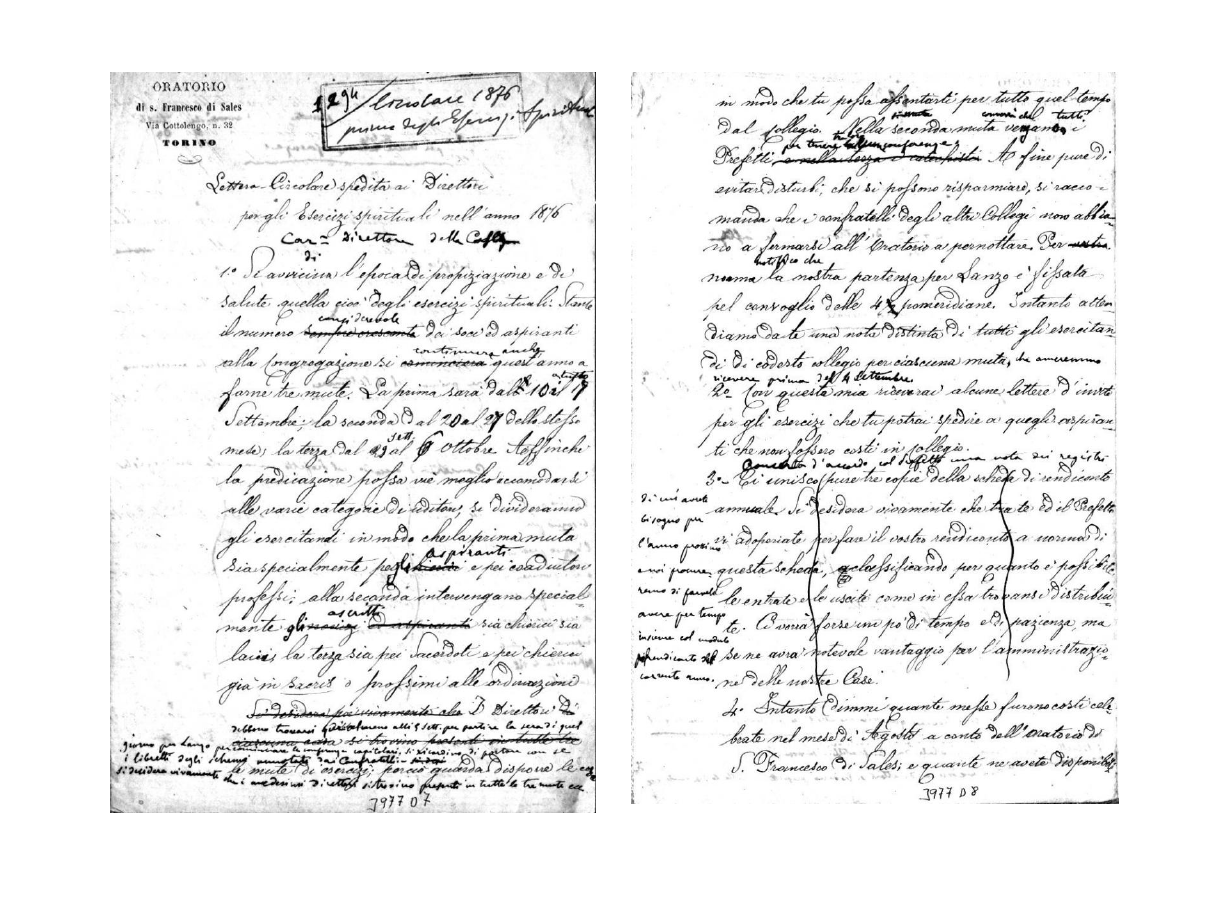 ORATORIO
di s. Francesco di Sales
Via Cottolengo, n. 32
TORINO
Circolare 1876
primo degli Esercizi Spirituali
Lettera-Circolare spedita ai Direttori
per gli Esercizi spirituali nell'anno 1876
Car.mo Direttore della
1.o Si avvicina l'epoca di propiziazione e di
salute quella cioè degli esercizi spirituali. Stante
considerevole
il numero sempre crescente dei soci ed aspiranti
continuerà anche
alla Congregazione si comincierà quest'anno a
farne tre mute. La prima sarà dal 10 al 17
Settembre; la seconda dal 20 al 27 dello stesso
sett.
mese; la terza dal al 6 Ottobre Affinché
la predicazione possa vie meglio accomodarsi
alle varie categorie di uditori, si divideranno
gli esercitandi in modo che la prima muta
aspiranti
sia specialmente per gli e pei coadiutori
professi; alla seconda intervengano special-
ascritti
mente gli novizi ed aspiranti sia chierici sia
laici; la terza sia pei Sacerdoti e pei chierici
già in sacris o prossimi alle ordinazioni
Si desidera poi vivamente che I Direttori di
debbono trovarsi all' per partire la sera di quel
ciascuna casa si trovino presenti in tutte le
giorno per Lanzo per
i libretti degli schemi annotati dai Confratelli
3 mute di esercizi; perciò guarda disporre le cose
si desidera vivamente che i medesimi direttori si trovino presenti in tutte le tre mute
3977 D 7
in modo che tu possa assentarti per tutto quel tempo
tutti
dal collegio. Nella seconda muta vengano i
per tenere conferenze;
Prefetti, e nella terza i catechisti A fine pure di
evitare disturbi, che si possono risparmiare, si racco-
manda che i confratelli degli altri Collegi non abbia-
no a fermarsi all'Oratorio a pernottare. Per vostra
notifico che
norma la nostra partenza per Lanzo è fissata
pel convoglio delle 4 pomeridiane. Intanto atten-
diamo da te una nota distinta di tutti gli esercitan-
di di codesto collegio per ciascuna muta, che ameremmo
ricevere prima del 4 Settembre
2.o Con questa mia riceverai alcune lettere d'invito
per gli esercizi che tu potrai spedire a quegli aspiran-
ti che non fossero costì in collegio.
Concerta d'accordo col Prefetto una nota dei registri
3.o Ti unisco pure tre copie della scheda di rendiconto
di cui avete
annuale. Si desidera vivamente che tra te ed il Prefetto
bisogno per
l'anno prossimo
vi adoperiate per fare il vostro rendiconto a norma di
e noi procure-
questa scheda, classificando per quanto è possibi-
remo di farvela
le entrate e le uscite come in essa trovansi distribui-
avere per tempo
te. Ci vorrà forse un po' di tempo e di pazienza, ma
insieme col modulo
rendiconto del
se ne avrà notevole vantaggio per l'amministrazio-
corrente anno.
ne delle nostre Case.
4.o Intanto dimmi quante messe furono costì cele-
brate nel mese di Agosto a conto dell'Oratorio di
S. Francesco di Sales; e quante ne avete disponibili
3977 D 8